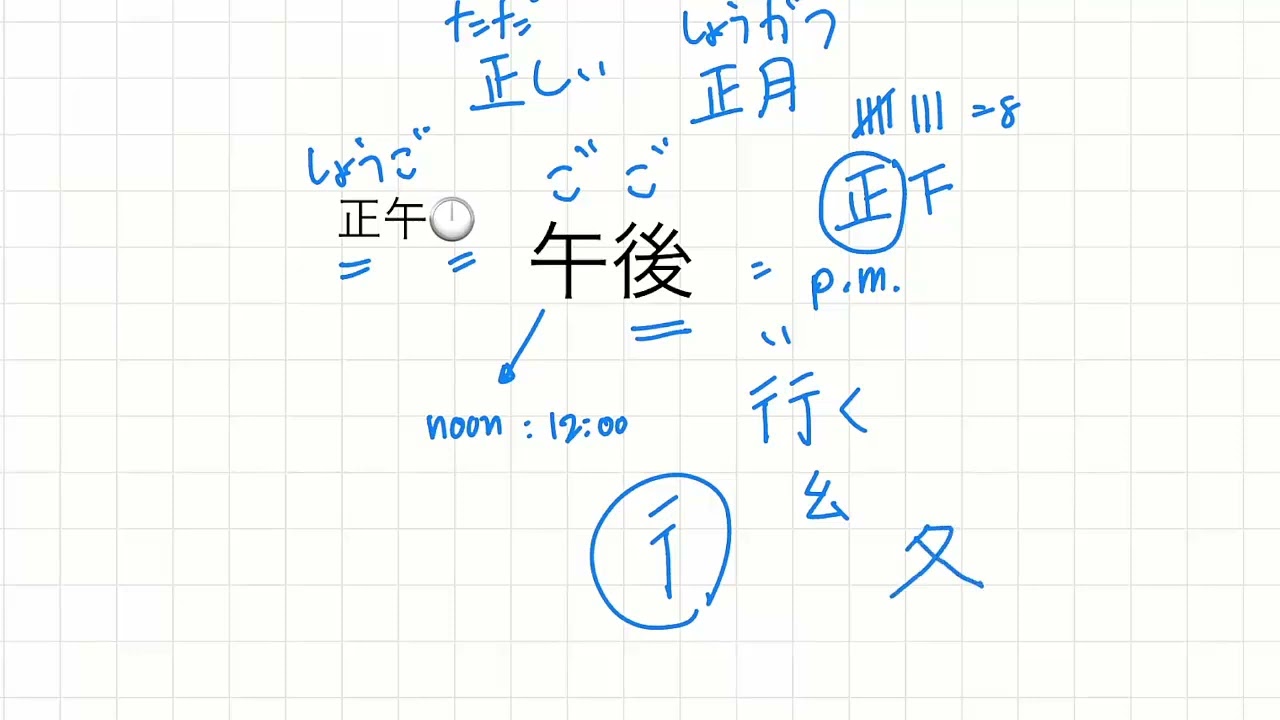 ただ しょうがつ
正しい 正月
𝍸 ||| =8
しょうご ごご
正午 午後 = p.m.
正 下
い
noon : 12:00 行く
彳 幺 夂